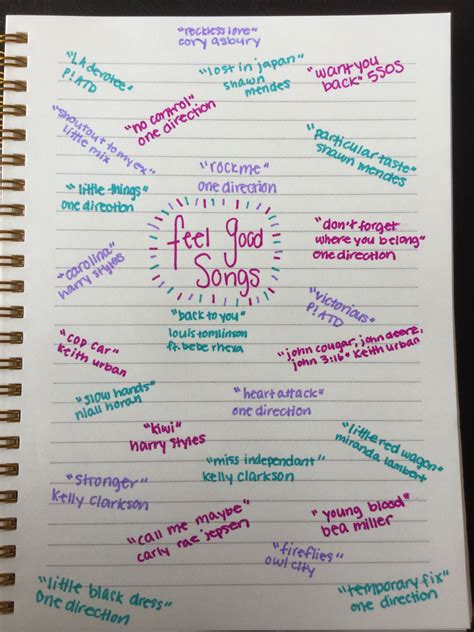 "reckless love"
cory asbury
"LA devotee"
P!ATD
"lost in japan"
shawn
mendes
"want you
back" 5SOS
"no control"
one direction
"shoutout to my ex"
little mix
"particular taste"
shawn mendes
"rock me"
one direction
"little things"
one direction
feel good
songs
"don't forget
where you belong"
one direction
"carolina"
harry styles
"victorious"
P!ATD
"back to you"
louis tomlinson
ft. bebe rhexa
"cop car"
keith urban
"john cougar, john deere,
john 3:16" keith urban
"slow hands"
niall horan
"heart attack"
one direction
"kiwi"
harry styles
"little red wagon"
miranda lambert
"miss independant"
kelly clarkson
"stronger"
kelly clarkson
"young blood"
bea miller
"call me maybe"
carly rae jepsen
"fireflies"
owl city
"little black dress"
one direction
"temporary fix"
one direction